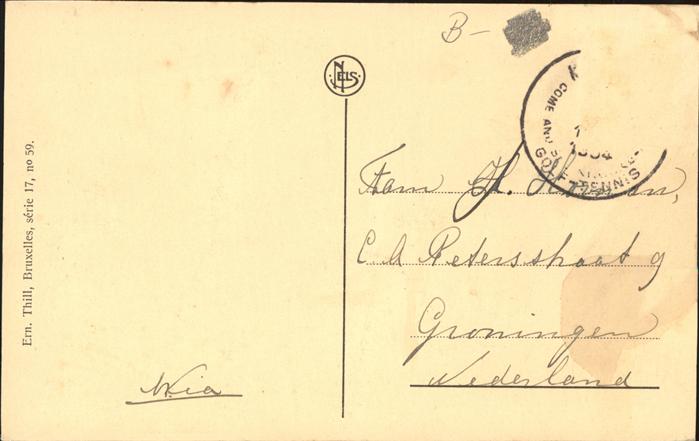 B-
NELS
COME AND
GOLF TENNIS
1934
Fam H.
C A Petersstraat 9
Groningen
Nederland
Mia
Ern. Thill, Bruxelles, série 17, no 59.